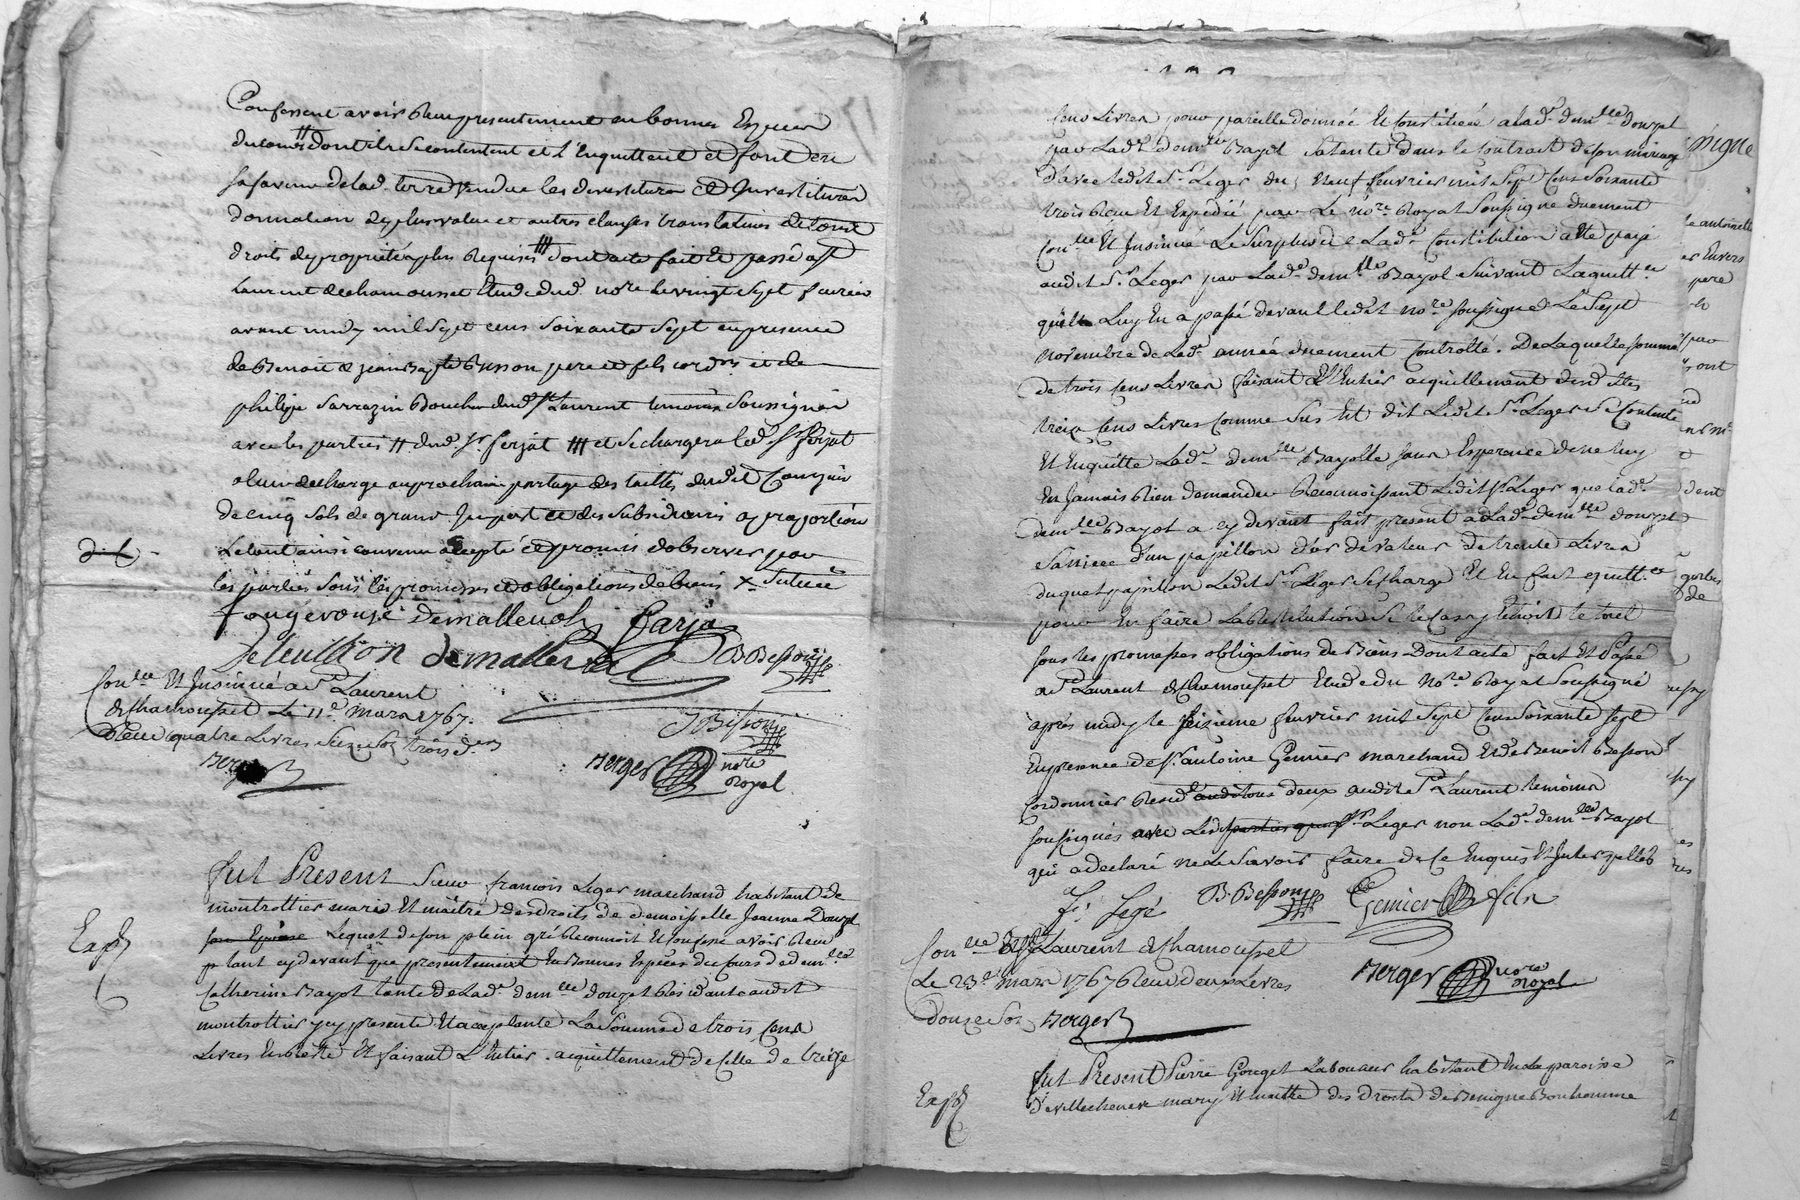 Confessent avoir Receu presentement en bonnes Especes
du cours dont ils se contentent et l'Enquittent et font en
sa faveur de lad. terre vendue les devestitures et Investitures
donnation de plus value et autres clauses translatives de tous
droits de propriété a plus Requises dont acte fait et passé a St
Laurent de chamousset Etude dud. nore le vingt sept fevrier
avant midy mil sept cens soixante sept en presence
de Benoit & jean Bapte Besson pere et fils cordrs et de
philipe Sarrazin Boucher dud. St Laurent temoins Soussignés
avec les parties // dud. Sr ferjat //// et se chargera led. Sr ferjat
a leur decharge au prochain partage des tailles dudit
de cinq sols de grand Impost et des subsidiaires a proportion
Le tout ainsi convenu accepté et promis d'observer par
les parties sous les promesses et obligations de biens X
fougerouse Demalleval
demalleval BBesson
Conlle Et Insinué a St Laurent
de Chamousset le 11e Mars 1767.
Receu quatre Livres seize sols trois d.
JBesson
Berger
Berger nore Royal
Fut Present Sieur francois Leger marchand habitant de
montrottier maris Et maître des droits de demoiselle Jeanne Douzel
son Epouse Lequel de son plein gré Reconnoit Et confesse avoir Receu
tant cy devant que presentement En Bonnes Especes du Cours de demlle
Catherine Bayol tante de Lad. demlle douzel Residante audit
montrottier icy presente Et acceptante La Somme de trois Cens
Livres En Reste Et faisant L'Entier acquittement de Celle de treize
Expé
Cens Livres pour pareille donnée Et Constituée a Lad. demlle douzel
par Lad. demlle Bayol sa tente dans le Contrat de son mariage
d'avec ledit Sr Leger du Neuf feuvrier mil Sept Cens Soixante
trois Receu Et Expedié par Le Nore Royal Soussigné duement
Conlle Et Insinué Le Surplus de Lad. Constitution a Eté payé
audit Sr Leger par Lad. demlle Bayol suivant La quitt.ce
qu'il Luy En a passé devant ledit Nore soussigné Le Sept
Novembre de Lad. année duement Controllé. De Laquelle somme
de trois Cens Livres faisant L'Entier acquittement desdites
treize Cens Livres Comme Sus Est dit Ledit Sr Leger Se Contente
Et Enquitte Lad. demlle Bayolle sans Esperance de ne Luy
En Jamais Rien demander Reconnoissant Ledit Sr Leger que Lad.
demlle Bayol a cy devant fait present a Lad. demlle douzel
sa niece d'un papillon d'or de valeur de trente Livres
duquel papillon Ledit Sr Leger se Charge Et En fait quitt.ce
pour En faire La Restitution si le Cas y Echoit le tout
sous les promesses obligations de Biens Dont acte fait Et Passé
a St Laurent de Chamousset Etude du Nore Royal Soussigné
après midy le seizieme feuvrier mil Sept Cens Soixante Sept
En presence de Sr antoine Genier marchand Et de Benoit Besson
Cordonnier Resid. deux audit St Laurent temoins
soussignés avec Ledit Sr Leger non Lad. demlle Bayol
qui a declaré ne Le Savoir faire de Ce Enquis Et Interpellés
fs Legé BBesson Genier fils
Conlle St Laurent de Chamousset
Le 23e Mars 1767 Receu deux Livres
Douze Sols Berger
Berger Nore Royal
Fut Present Pierre Gouget Laboureur habitant En La paroisse
de villecheneve mary Et maitre des Droits de Benigne Bonhomme
Expé